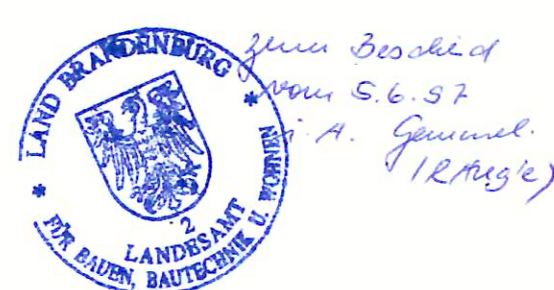 LAND BRANDENBURG
2
LANDESAMT
FÜR BAUEN, BAUTECHNIK U. WOHNEN
zum Bescheid
vom 5.6.97
i. A.